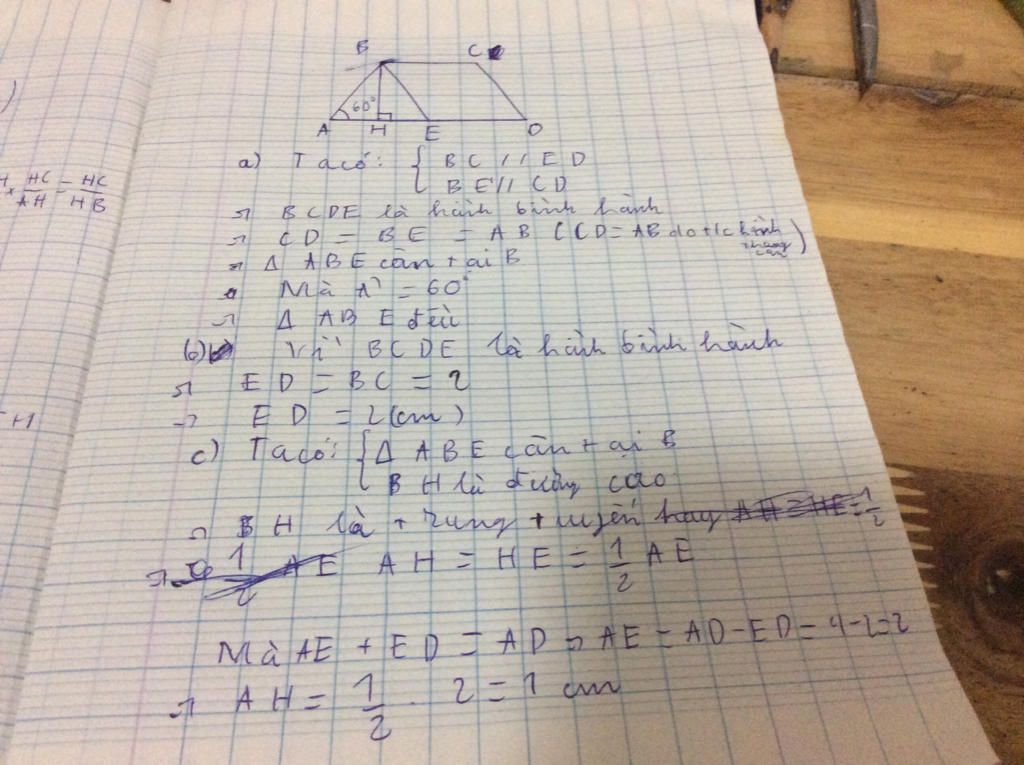 B C
60°
A H E D
a) Ta có: { BC // ED
BE // CD
=> BCDE là hình bình hành
=> CD = BE = AB (CD = AB do t/c hình thang cân)
=> Δ ABE cân tại B
Mà Â = 60°
=> Δ ABE đều
b) Vì BCDE là hình bình hành
=> ED = BC = 2
=> ED = 2(cm)
c) Ta có: { Δ ABE cân tại B
BH là đường cao
=> BH là trung tuyến hay AH = HE = 1/2
=> 1/2 AE AH = HE = 1/2 AE
Mà AE + ED = AD => AE = AD - ED = 4 - 2 = 2
=> AH = 1/2 . 2 = 1 cm
HC/AH = HC/HB
+1